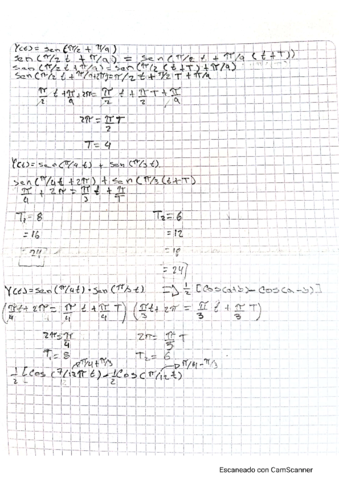 Y(t) = sen(π/2 + π/9)
sen(π/2 t + π/9) = sen(π/2 t + π/9 (t+T))
sen(π/2 t + π/9) = sen(π/2 (t+T) + π/9)
sen(π/2 t + π/9 + 2π) = π/2 t + π/2 T + π/9
π/2 t + π/9 + 2π = π/2 t + π/2 T + π/9
2π = π/2 T
T = 4
Y(t) = sen(π/4 t) + sen(π/3 t)
sen(π/4 t + 2π) + sen(π/3 (t+T)
π/4 + 2π = π/3 t + π/9
T₁ = 8 T₂ = 6
= 16 = 12
= 24 = 18
= 24
Y(t) = sen(π/4 t) · sen(π/3 t) => 1/2 [cos(a+b) - cos(a-b)]
(π/4 t + 2π = π/4 t + π/4 T) (π/3 t + 2π = π/3 t + π/3 T)
2π = π/4 2π = π/3 T
T₁ = 8 T₂ = 6
π/4 + π/3 π/4 - π/3
1/2 [cos(7/12 π t) - 1/2 cos(π/12 t)
Escaneado con CamScanner